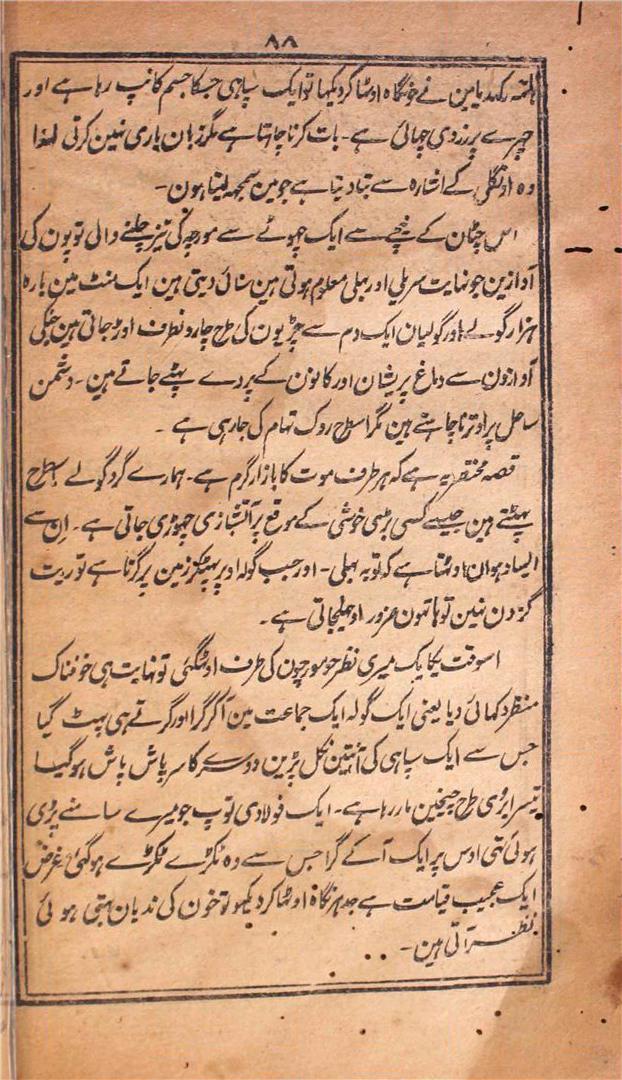 ۸۸
ہاتھ رکھدیا مین نے جو نگاہ اوٹھا کر دیکھا تو ایک سپاہی جسکا جسم کانپ رہا ہے اور
چہرے پر زردی چھائی ہے۔ بات کرنا چاہتا ہے مگر زبان یاری نہین کرتی لہذا
وہ اونگلی کے اشارہ سے بتا دیتا ہے جو مین سمجھ لیتا ہون۔
اس چٹان کے نیچے سے ایک چھوٹے سے مورچہ کی تیز چلنے والی توپون کی
آوازین جو نہایت سریلی اور بھلی معلوم ہوتی ہین سنائی دیتی ہین ایک منٹ مین بارہ
ہزار گولے اور گولیان ایک دم سے چڑیون کی طرح چارو نطرف اوڑ جاتی ہین جنکی
آوازون سے دماغ پریشان اور کانون کے پردے پھٹے جاتے ہین۔ دشمن
ساحل پر اوترنا چاہتے ہین مگر اسطرح روک تھام کی جا رہی ہے ۔
قصہ مختصر یہ ہے کہ ہر طرف موت کا بازار گرم ہے۔ ہمارے گرد گولے اسطرح
پھٹتے ہین جیسے کسی بڑی خوشی کے موقع پر آتشبازی چھوڑی جاتی ہے۔ ان سے
ایسا دہوان اوٹھتا ہے کہ توبہ بھلی۔ اور جب گولہ اوپر پھٹکر زمین پر گرتا ہے تو ریت
گز دن نہین تو ہاتھون ضرور اوچھلجاتی ہے۔
اسوقت یکایک میری نظر جو مورچون کی طرف اوٹھگئی تو نہایت ہی خوفناک
منظر دکھائی دیا یعنی ایک گولہ ایک جماعت مین آکر گرا اور گرتے ہی پھٹ گیا
جس سے ایک سپاہی کی آنتین نکل پڑین دوسرے کا سر پاش پاش ہوگیا
تیسرا بری طرح چیخین مار رہا ہے۔ ایک فولادی توپ جو میرے سامنے پڑی
ہوئی تھی اوس پر ایک آکے گرا جس سے وہ ٹکڑے ٹکڑے ہوگئی غرض
ایک عجیب قیامت ہے جدہر نگاہ اوٹھا کر دیکھو تو خون کی ندیان بہتی ہوئی
نظر آتی ہین۔